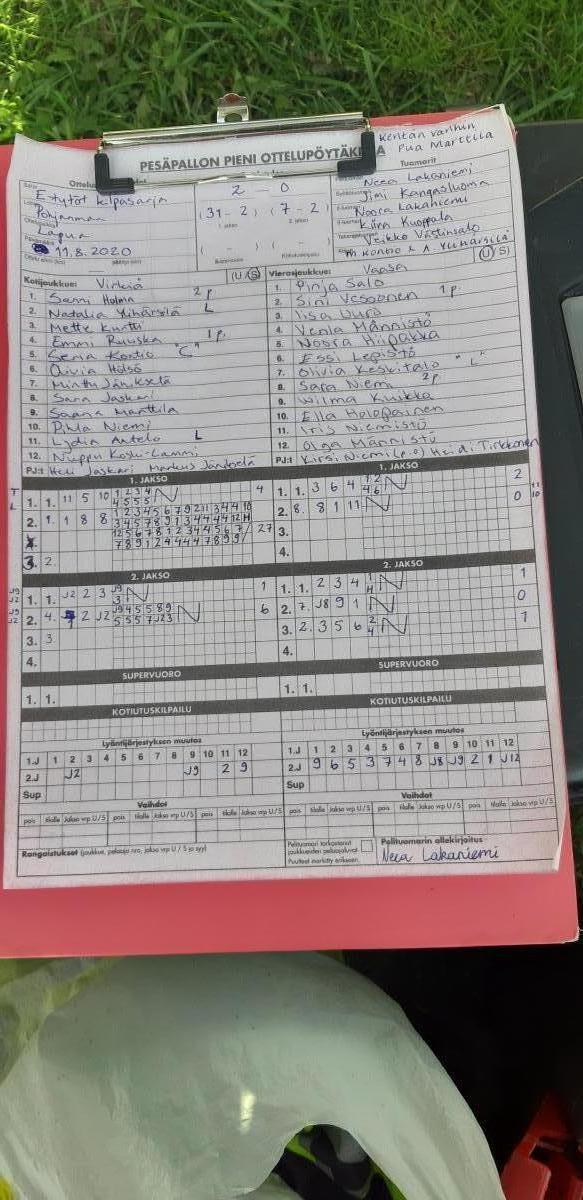 Kentän vanhin
Pua Marttila
PESÄPALLON PIENI OTTELUPÖYTÄKIRJA
Tuomarit
E-tytöt kilpasarja
Pohjanmaa
Lapua
11.8.2020
2 - 0
(31 - 2) (7 - 2)
1. jakso 2. jakso
( - ) ( - )
Neea Lakaniemi
Jimi Kangasluoma
Noora Lakaniemi
Kiira Kuoppala
Veikko Västinsalo
M Kontio & A Ylihärsilä
Kotijoukkue: Virkiä (U/S)
1. Sanni Holma 2p
2. Natalia Ylihärsilä L
3. Mette Kurtti
4. Emmi Ruuska 1p.
5. Senja Kontio "C"
6. Olivia Hölsö
7. Minttu Jänkselä
8. Sara Jaskari
9. Saana Marttila
10. Pihla Niemi
11. Lydia Antelo L
12. Nuppu Koski-Lammi
PJ:t Heli Jaskari Markus Jandselä
Vierasjoukkue: Vaasa (U/S)
1. Pinja Salo
2. Sini Vesoonen 1p.
3. Iisa Uuro
4. Venla Männistö
5. Noora Hiipakka
6. Essi Lepistö
7. Olivia Keskitalo "L"
8. Sara Niemi 2p.
9. Wilma Kuikka
10. Ella Holopainen
11. Iris Niemistö
12. Olga Männistö
PJ:t Kirsi Niemi (e.o) Heidi Tirkkonen
1. JAKSO
1. 1. 11 5 10 1 2 3 4 4
4 5 5 5
2. 1. 1 8 8
27
3. 2.
1. JAKSO
1. 1. 3 6 4 1 2 2
4 6
2. 8. 8 1 11 0
3.
4.
2. JAKSO
1. 1. J2 2 3 J9 1
3
2. 4. 2 J2 J9 4 5 5 8 9 6
5 5 5 7 J2 3
3. 3
4.
2. JAKSO
1. 1. 2 3 4 1 1
H
2. 7. J8 9 1 0
3. 2. 3 5 6 2 1
4
4.
SUPERVUORO
1. 1.
SUPERVUORO
1. 1.
KOTIUTUSKILPAILU
KOTIUTUSKILPAILU
Lyöntijärjestyksen muutos
1.J 1 2 3 4 5 6 7 8 9 10 11 12
2.J J2 J9 2 9
Sup
Lyöntijärjestyksen muutos
1.J 1 2 3 4 5 6 7 8 9 10 11 12
2.J 9 6 5 3 7 4 8 J8 J9 2 1 J12
Sup
Vaihdot
pois tilalle Jakso vrp U/S pois tilalle Jakso vrp U/S pois tilalle Jakso vrp U/S
Vaihdot
pois tilalle Jakso vrp U/S pois tilalle Jakso vrp U/S pois tilalle Jakso vrp U/S
Rangaistukset (joukkue, pelaaja nro, jakso vrp U / S ja syy)
Pelituomari tarkastanut
joukkueiden pelaajaluvat
Puutteet merkitty erikseen.
Pelituomarin allekirjoitus
Neea Lakaniemi